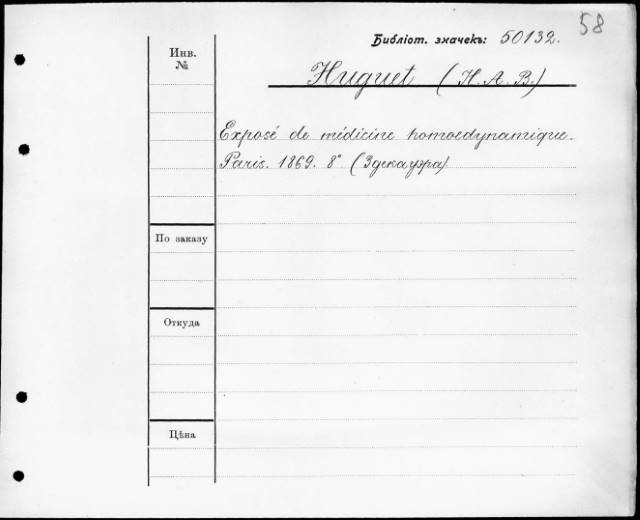 58
Библіот. значекъ: 50132.
Инв.
№
Huguet (H. A. B.)
Exposé de médicine homoedynamique.
Paris. 1869. 8° (Здекауэра)
По заказу
Откуда
Цѣна